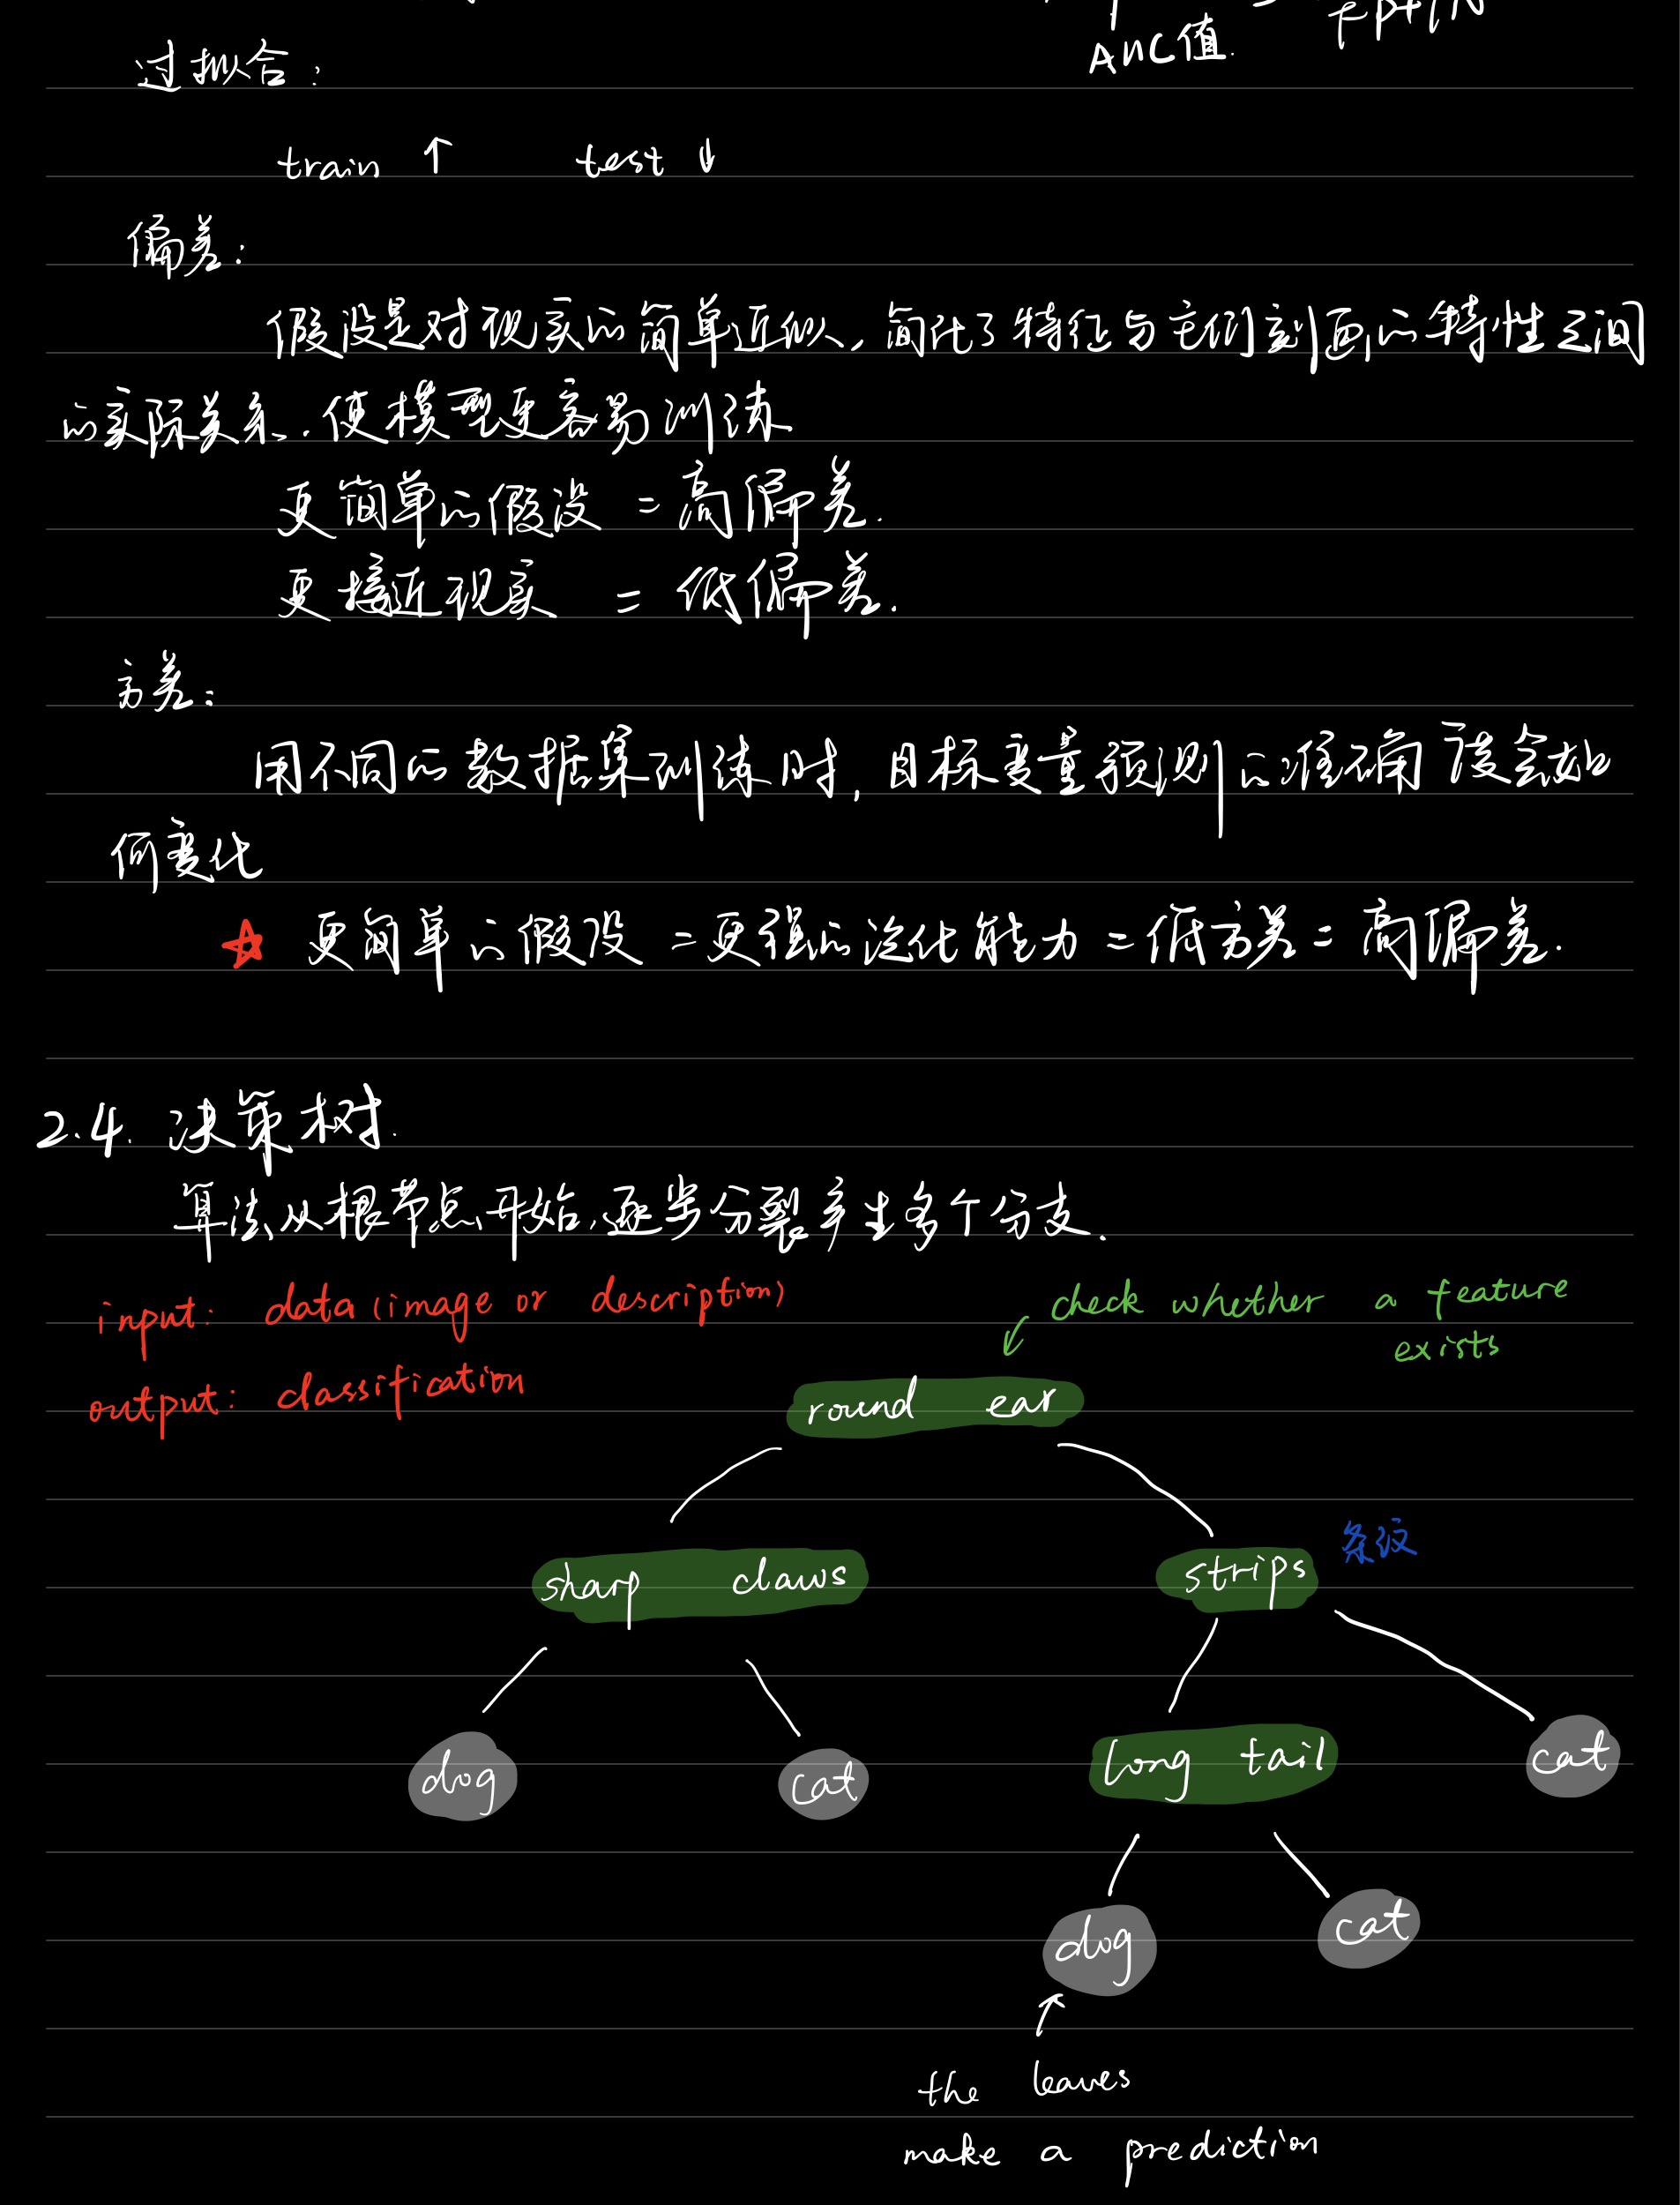 AUC值.
过拟合:
train ↑ test ↓
偏差:
假设是对现实的简单近似, 简化了特征与它们刻画的特性之间
的实际关系. 使模型更容易训练
更简单的假设 = 高偏差.
更接近现实 = 低偏差.
方差:
用不同的数据集训练时, 目标变量预测的准确度会如
何变化
☆ 更简单的假设 = 更强的泛化能力 = 低方差 = 高偏差.
2.4. 决策树.
算法从根节点开始,逐步分裂产生多个分支.
input: data (image or description)
check whether a feature
exists
output: classification
round ear
sharp claws
strips 条纹
dog
cat
long tail
cat
dog
cat
the leaves
make a prediction